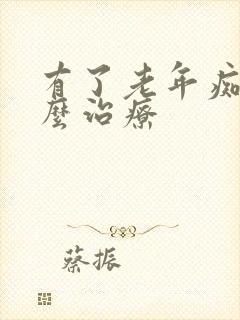 有了老年痴
麼治療
蔡振